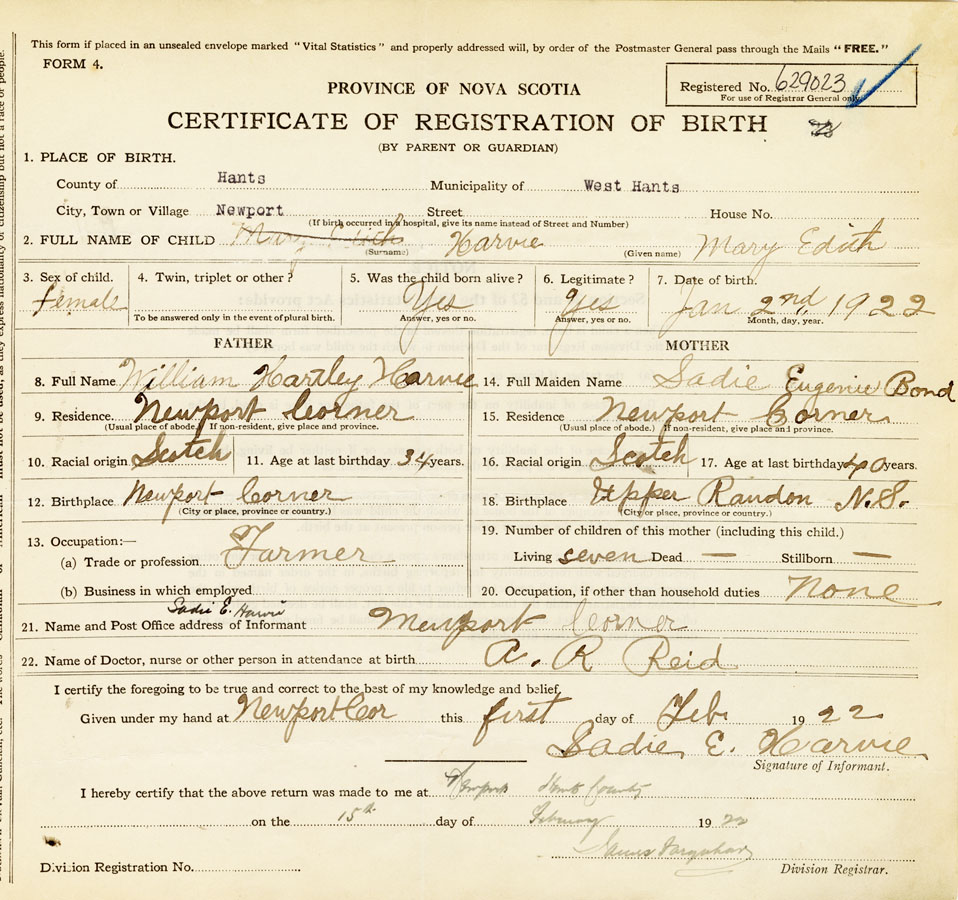 This form if placed in an unsealed envelope marked "Vital Statistics" and properly addressed will, by order of the Postmaster General pass through the Mails "FREE."
FORM 4.
Registered No. 629023
For use of Registrar General only.
PROVINCE OF NOVA SCOTIA
CERTIFICATE OF REGISTRATION OF BIRTH
(BY PARENT OR GUARDIAN)
1. PLACE OF BIRTH.
County of Hants Municipality of West Hants
City, Town or Village Newport Street House No.
(If birth occurred in a hospital, give its name instead of Street and Number)
2. FULL NAME OF CHILD Mary Edith Harvie Mary Edith
(Surname) (Given name)
3. Sex of child. 4. Twin, triplet or other? 5. Was the child born alive? 6. Legitimate? 7. Date of birth.
female Yes Yes Jan 2nd, 1922
To be answered only in the event of plural birth. Answer, yes or no. Answer, yes or no. Month, day, year.
FATHER MOTHER
8. Full Name William Hartley Harvie 14. Full Maiden Name Sadie Eugenie Bond
9. Residence. Newport Corner 15. Residence Newport Corner
(Usual place of abode.) If non-resident, give place and province. (Usual place of abode.) If non-resident, give place and province.
10. Racial origin Scotch 11. Age at last birthday 34 years. 16. Racial origin Scotch 17. Age at last birthday 40 years.
12. Birthplace Newport Corner 18. Birthplace Upper Raudon N.S.
(City or place, province or country.) (City or place, province or country.)
13. Occupation:— 19. Number of children of this mother (including this child.)
(a) Trade or profession Farmer Living seven Dead — Stillborn —
(b) Business in which employed 20. Occupation, if other than household duties None
Sadie E. Harvie
21. Name and Post Office address of Informant Newport Corner
22. Name of Doctor, nurse or other person in attendance at birth A. R Reid
I certify the foregoing to be true and correct to the best of my knowledge and belief.
Given under my hand at Newport Cor this first day of Feb 1922
Sadie E. Harvie
Signature of Informant.
I hereby certify that the above return was made to me at Newport Hants County
on the 15th day of February 1922
James
Division Registration No. Division Registrar.